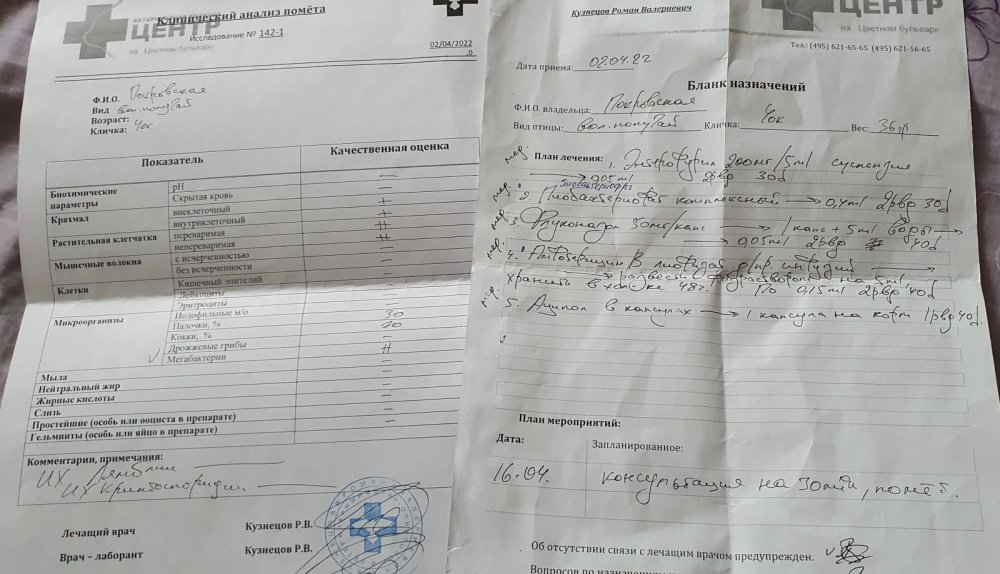 Клинический анализ помёта
ЦЕНТР
на Цветном бульваре
Исследование № 142-1
02/04/2022
Ф.И.О. Покровская
Вид вол. попугай
Возраст:
Кличка: Чок
Показатель Качественная оценка
Биохимические параметры
pH —
Скрытая кровь —
Крахмал
внеклеточный +
внутриклеточный ++
Растительная клетчатка
переваримая ++
непереваримая —
Мышечные волокна
с исчерченностью —
без исчерченности —
Клетки
Кишечный эпителий —
Лейкоциты —
Эритроциты —
Микроорганизмы
Иодофильные м/о 30
Палочки, % 70
Кокки, % —
Дрожжевые грибы —
Мегабактерии ++
Мыла —
Нейтральный жир —
Жирные кислоты —
Слизь —
Простейшие (особь или ооциста в препарате) —
Гельминты (особь или яйцо в препарате) —
Комментарии, примечания:
ИХ Лямблии —
ИХ Криптоспоридии —
Лечащий врач Кузнецов Р.В.
Врач – лаборант Кузнецов Р.В.
Кузнецов Роман Валериевич
ЦЕНТР
на Цветном бульваре
Тел.: (495) 621-65-65 (495) 621-56-65
Дата приема: 02.04.22
Бланк назначений
Ф.И.О. владельца: Покровская
Вид птицы: вол. попугай Кличка: Чок Вес: 36гр
План лечения: 1. Энтерофурил 200мг/5ml суспензия
→ 0,05ml 2рвд 30d
2. Пиобактериофаг комплексный → 0,4ml 2рвд 30d
3. Флуконазол 50мг/капс → 1 капс + 5ml воды →
→ 0,05ml 2рвд 40d
4. Амфотерицин В лиофизат д/пр. инфузий →
→ развести на 5ml,
хранить в 48ч. По 0,15ml 2рвд, 40d
5. Аципол в капсулах → 1 капсула на корм 1рвд 40d.
План мероприятий:
Дата: Запланированное:
16.04. консультация на 30мин, помёт.
Об отсутствии связи с лечащим врачом предупрежден.
Вопросов по назначениям